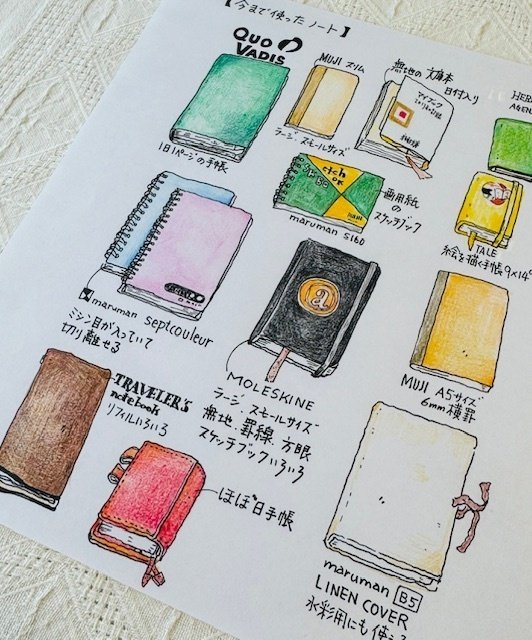 【今まで使ったノート】
QUO
VADIS
1日1ページの手帳
MUJI スリム
ラージ、スモールサイズ
無地の文庫本
日付入り
マイブック
HER
AGEN
etch
ok
maruman S160
画用紙
の
スケッチブック
TALE
絵を描く手帳 9×14
maruman septcouleur
ミシン目が入っていて
切り離せる
a
MOLESKINE
ラージ、スモールサイズ
無地、罫線、方眼
スケッチブックいろいろ
MUJI A5サイズ
6mm横罫
TRAVELER'S
notebook
リフィルいろいろ
ほぼ日手帳
maruman B5
LINEN COVER
水彩用にも使